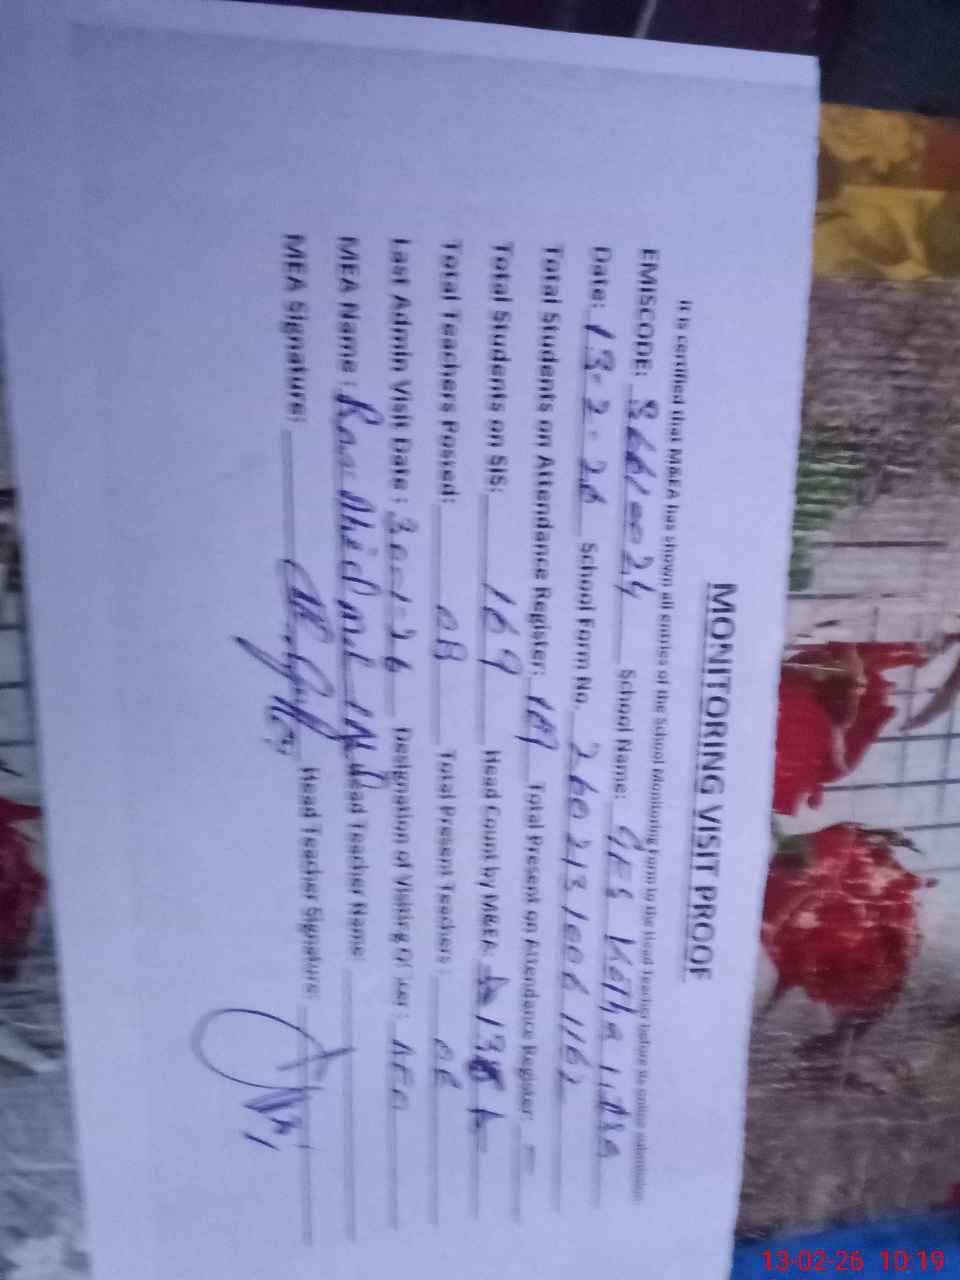 MONITORING VISIT PROOF
It is certified that M&EA has shown all entries of the School Monitoring Form to the Head Teacher before its online submission
EMISCODE: 36610024 School Name: GES
Date: 13-2-26 School Form No. 2602131006 1162
Total Students on Attendance Register: 169 Total Present on Attendance Register: -
Total Students on SIS: 169 Head Count by M&EA:
Total Teachers Posted: 08 Total Present Teachers: 08
Last Admin Visit Date: 30-1-26 Designation of Visiting Officer: AEO
MEA Name: Head Teacher Name:
MEA Signature: Head Teacher Signature:
13-02-26 10:19